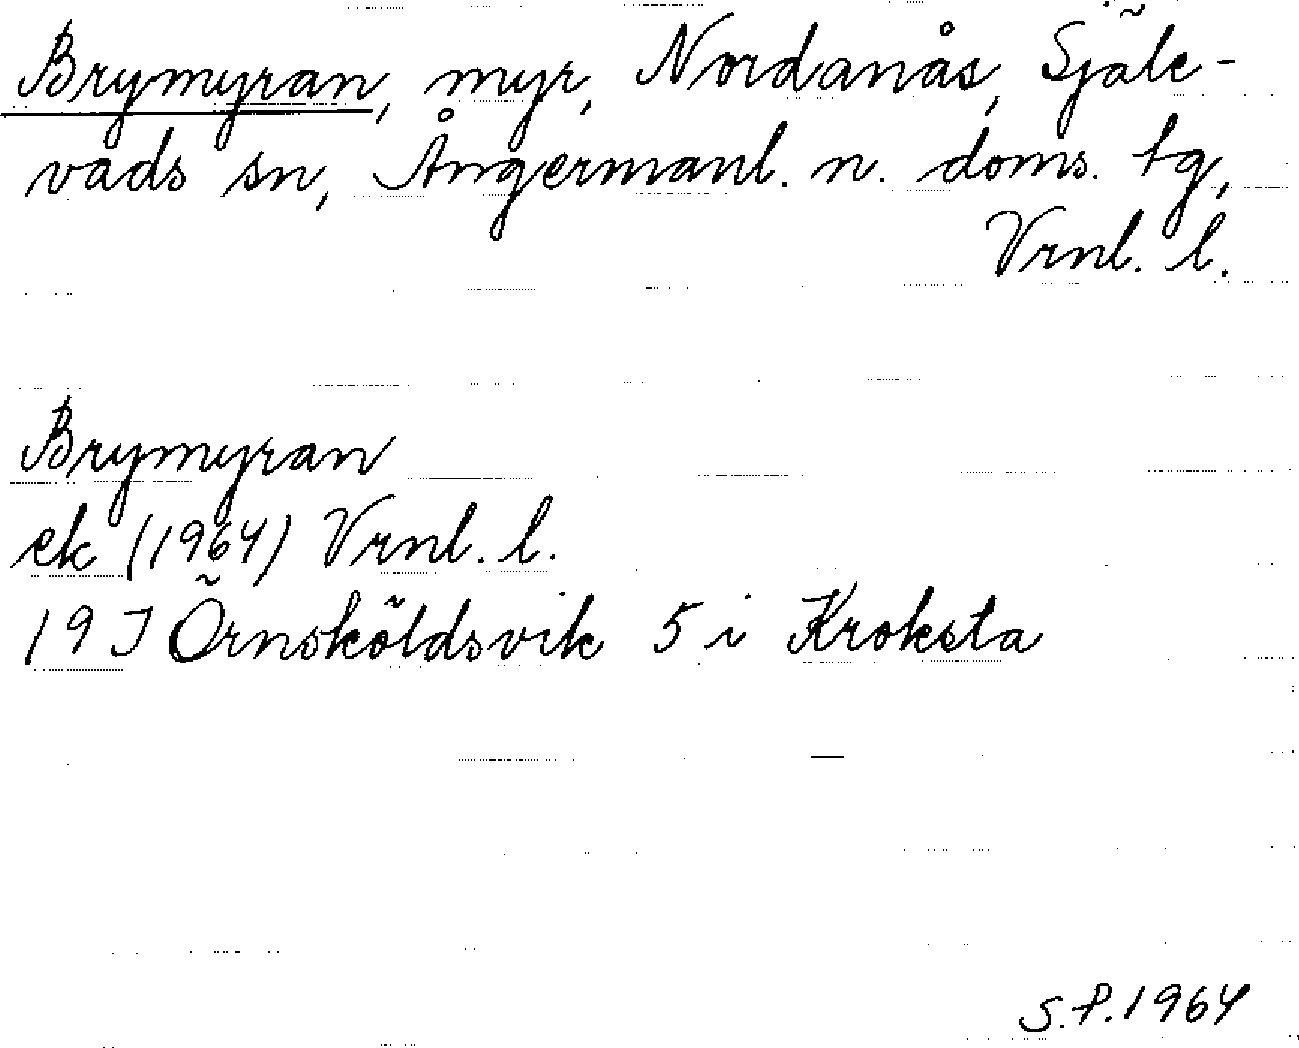 Brymyran, myr, Nordanås, Själe-
vads sn, Ångermanl. n. doms. tg,
Vrnl. l.
Brymyran
ek (1964) Vrnl. l.
19 J Örnsköldsvik 5 i Kroksta
S.P. 1964